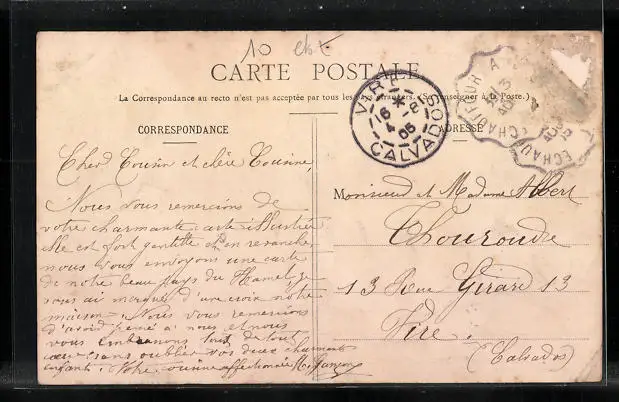 10 cts
CARTE POSTALE
La Correspondance au recto n'est pas acceptée par tous les pays étrangers. (Se renseigner à la Poste.)
VIRE
16 -8
05
CALVADOS
CORRESPONDANCE
ADRESSE
Cher Cousin et chère Cousine,
Nous vous remercions de
votre charmante carte illustrée
elle est fort gentille en revanche,
nous vous envoyons une carte
de notre beau pays du Hamel, je
vous ai marqué d'une croix notre
maison. Nous vous remercions
d'avoir pensé a nous et nous
vous embrassons tous de tout
cœur sans oublier vos deux charmants
enfants. Votre cousine affectionnée
Monsieur et Madame Albert
Thouroude
13 Rue Girard 13
Vire.
(Calvados)